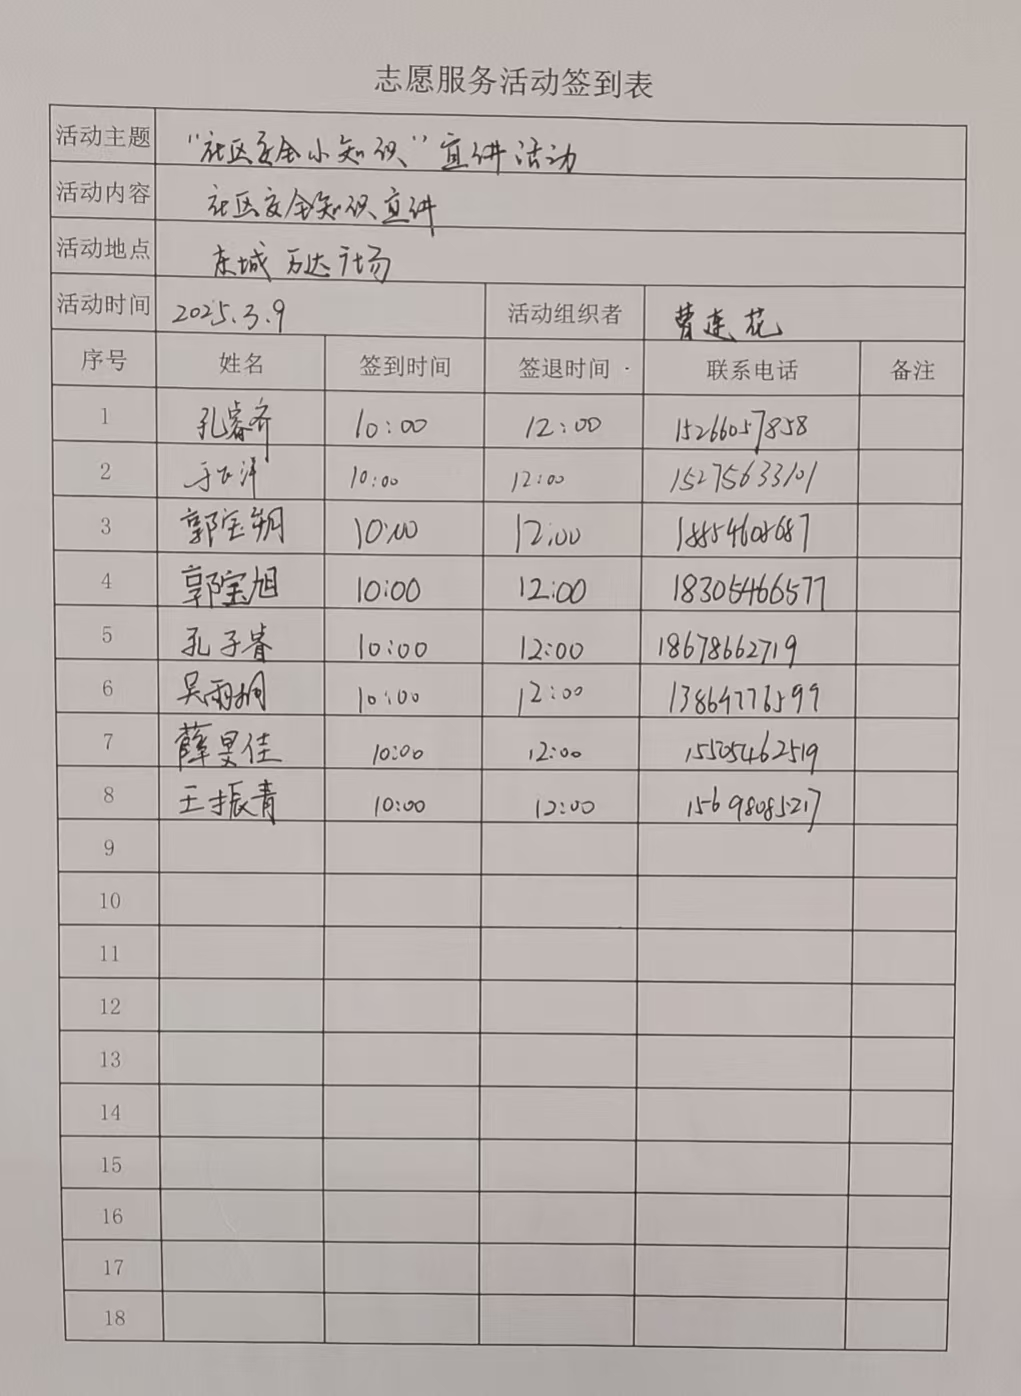 志愿服务活动签到表
活动主题 "社区安全小知识"宣讲活动
活动内容 社区安全知识宣讲
活动地点 东城万达广场
活动时间 2025.3.9 活动组织者 曹连花
序号 姓名 签到时间 签退时间 联系电话 备注
1 孔睿齐 10:00 12:00 15266057858
2 10:00 12:00 15275633101
3 郭宝朔 10:00 12:00 18854608687
4 郭宝旭 10:00 12:00 18305466577
5 孔子睿 10:00 12:00 18678662719
6 吴雨桐 10:00 12:00 13864776599
7 薛昊佳 10:00 12:00 15505462519
8 王振青 10:00 12:00 15698085217
9
10
11
12
13
14
15
16
17
18